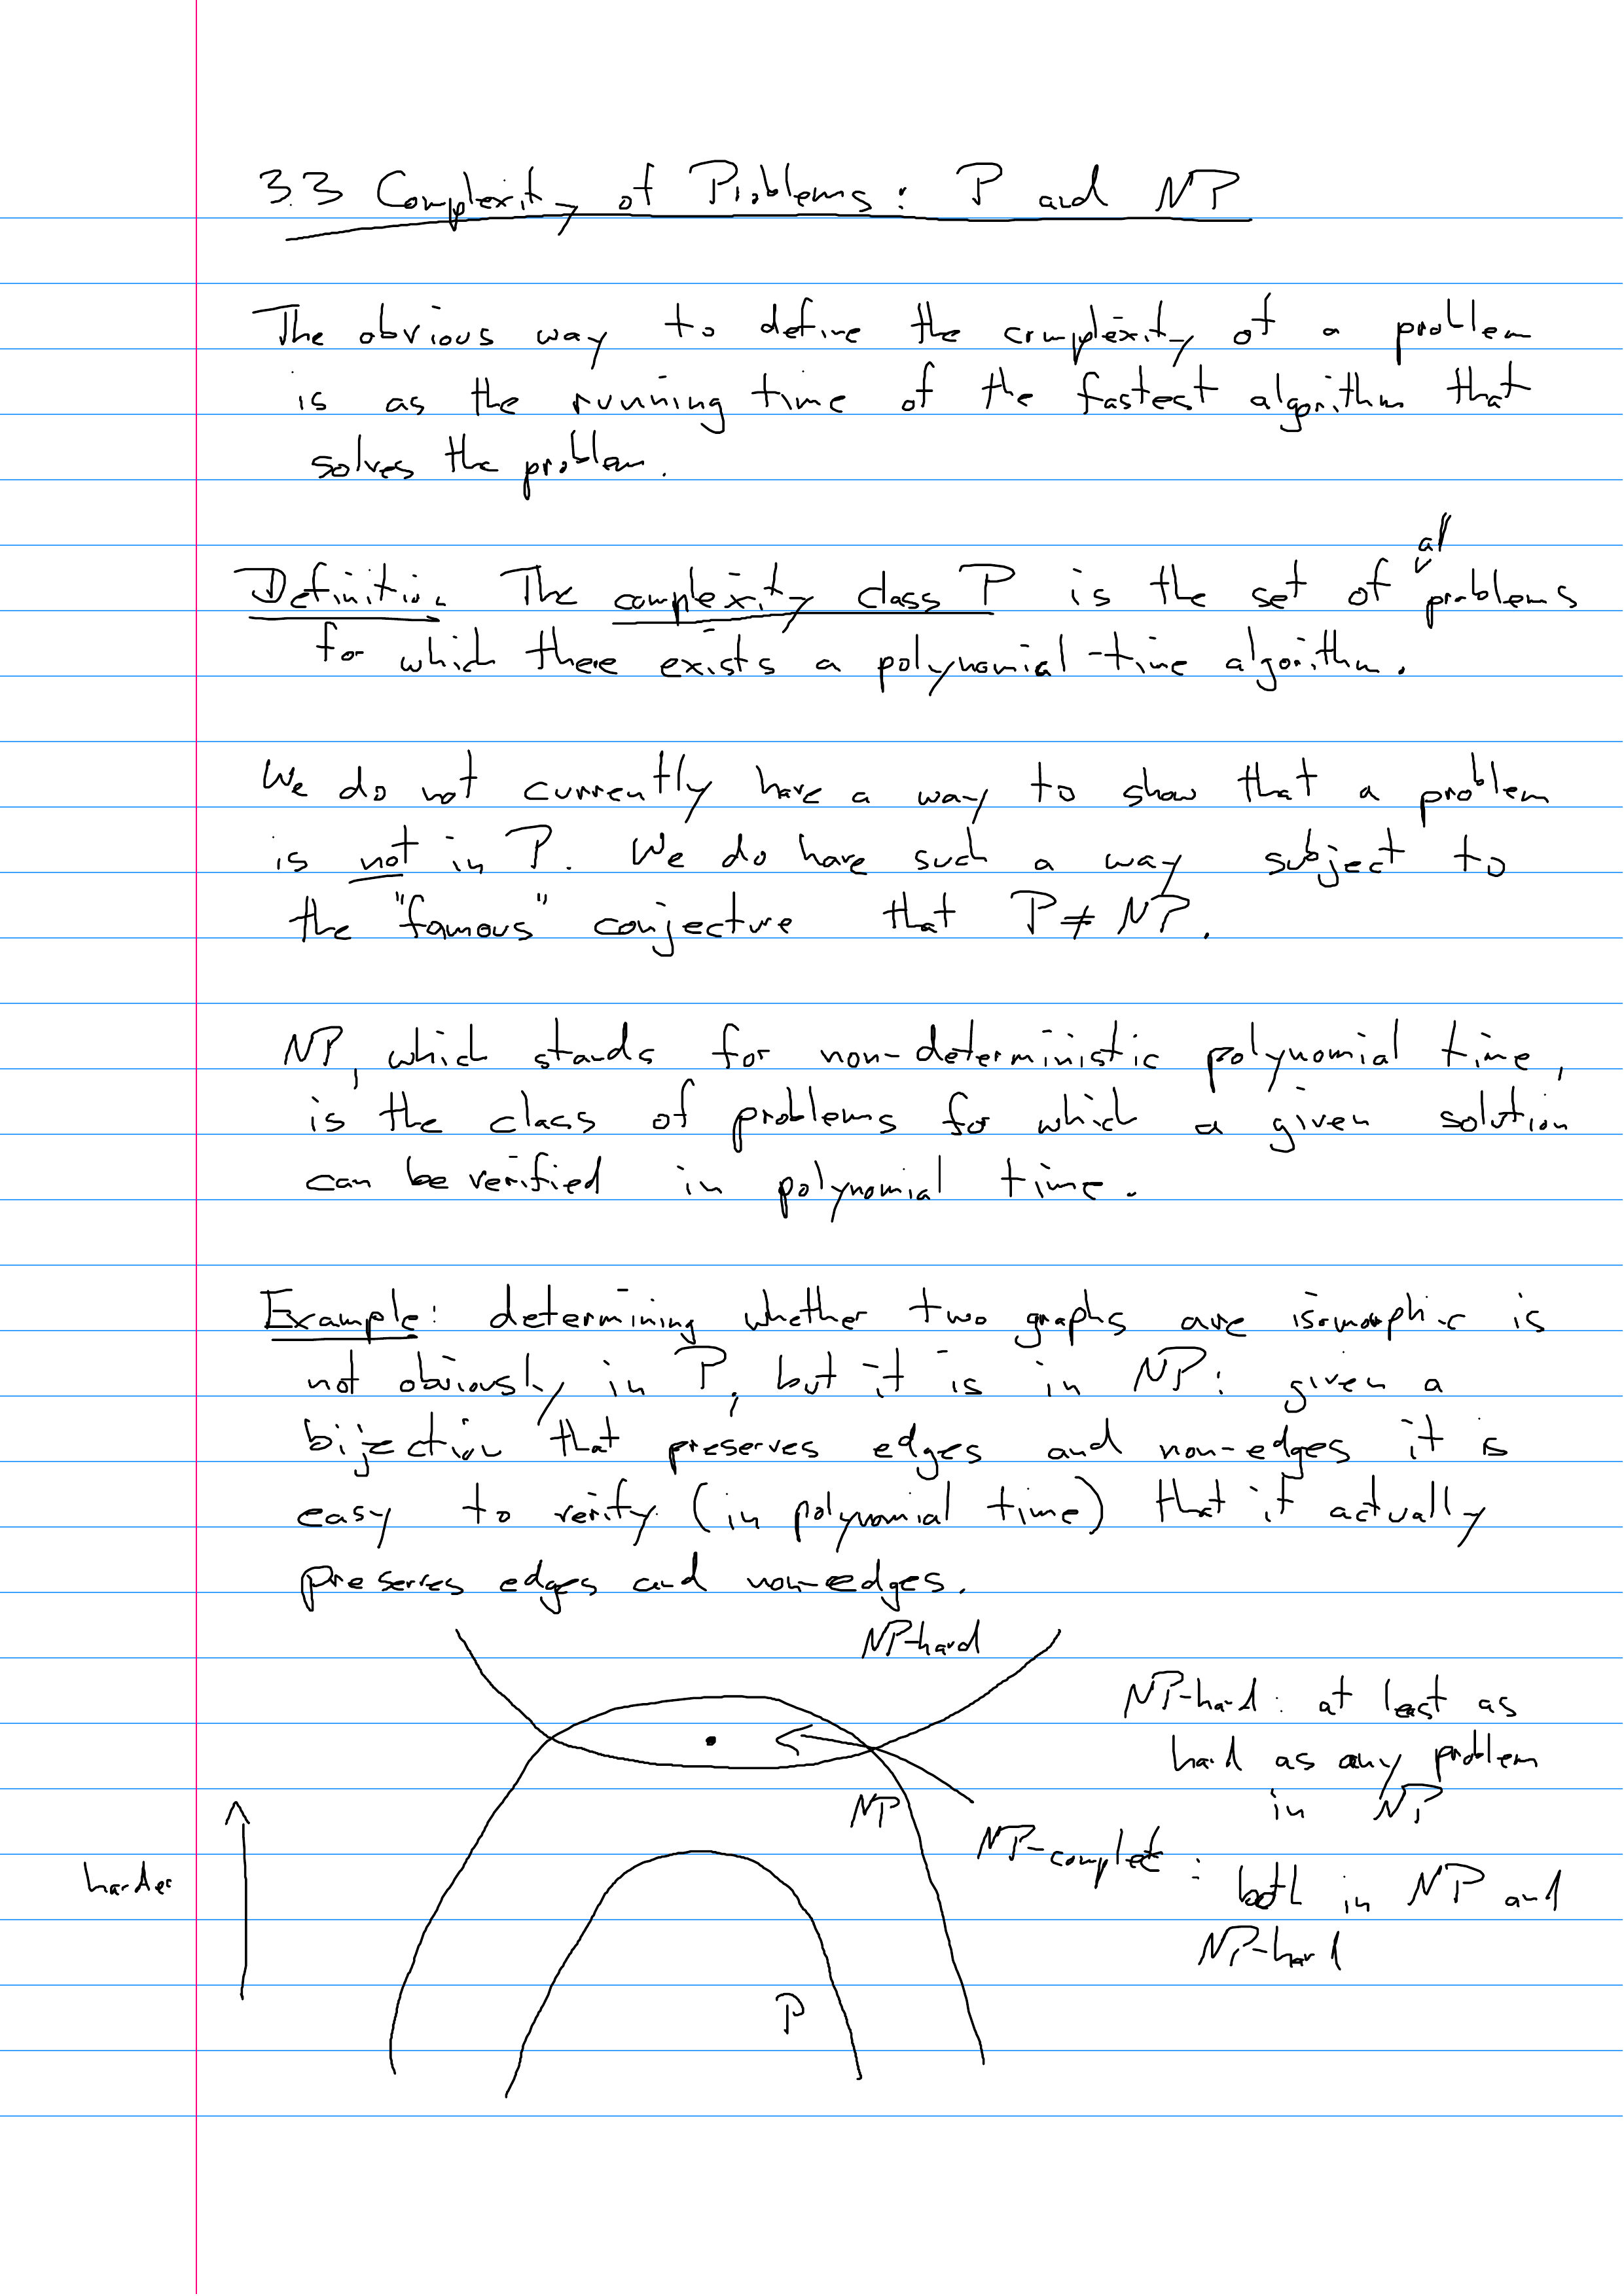 3.3 Complexity of Problems: P and NP
The obvious way to define the complexity of a problem
is as the running time of the fastest algorithm that
solves the problem.
all
Definition The complexity class P is the set of problems
for which there exists a polynomial-time algorithm.
We do not currently have a way to show that a problem
is not in P. We do have such a way subject to
the "famous" conjecture that P ≠ NP.
NP, which stands for non-deterministic polynomial time,
is the class of problems for which a given solution
can be verified in polynomial time.
Example: determining whether two graphs are isomorphic is
not obviously in P, but it is in NP: given a
bijection that preserves edges and non-edges it is
easy to verify (in polynomial time) that it actually
preserves edges and non-edges.
NP-hard
NP-hard: at least as
hard as any problem
in NP
NP
NP-complete:
both in NP and
NP-hard
harder
P